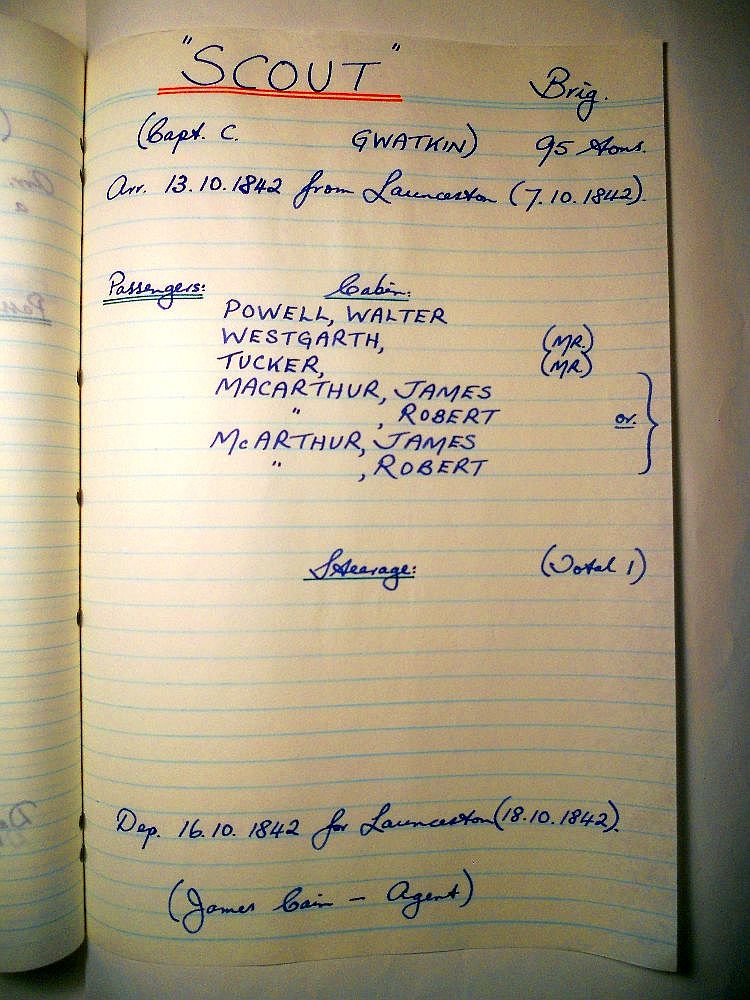 "SCOUT" Brig.
(Capt. C. GWATKIN) 95 Tons.
Arr. 13.10.1842 from Launceston (7.10.1842).
Passengers: Cabin:
POWELL, WALTER
WESTGARTH, (MR.)
TUCKER, (MR)
MACARTHUR, JAMES
" , ROBERT
or.
McARTHUR, JAMES
" , ROBERT
Stearage: (Total 1)
Dep. 16.10.1842 for Launceston (18.10.1842).
(James Cain - Agent)